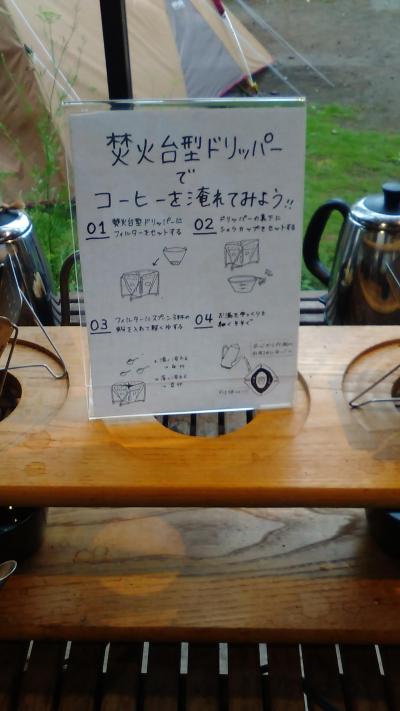 焚火台型ドリッパー
で
コーヒーを淹れてみよう!!
01 焚火台型ドリッパーに
フィルターをセットする
02 ドリッパーの真下に
シェラカップをセットする
03 フィルターにスプーン3杯の
粉を入れて軽くゆする
04 お湯をゆっくりと
細くそそぐ